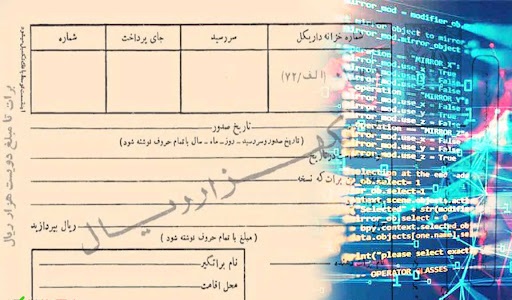 برات تا مبلغ دویست هزار ریال
شماره خزانه داری کل
سررسید
جای پرداخت
شماره
(الف/۷۲)
تاریخ صدور
(تاریخ صدور و سررسید - روز - ماه - سال با تمام حروف نوشته شود)
برات که نسخه
هزار ریال
ریال بپردازید
(مبلغ با تمام حروف نوشته شود)
نام براتگیر
محل اقامت
mirror_mod = modifier_ob.
mirror object to mirror
mirror_mod.mirror_object
operation == "MIRROR_X":
mirror_mod.use_x = True
mirror_mod.use_y = False
mirror_mod.use_z = False
operation == "MIRROR_Y":
mirror_mod.use_x = False
mirror_mod.use_y = True
mirror_mod.use_z = False
operation == "MIRROR_Z":
mirror_mod.use_x = False
mirror_mod.use_y = False
mirror_mod.use_z = True
selection at the end -add
ob.select= 1
ob.select=1
context.scene.objects.active
"Selected" + str(modifier
mirror_ob.select = 0
bpy.context.selected_ob
data.objects[one.name].sel
print("please select exactly
OPERATOR CLASSES